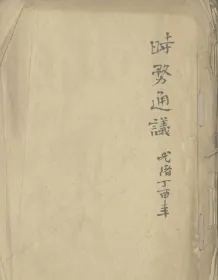 時务通議
光緒丁酉年